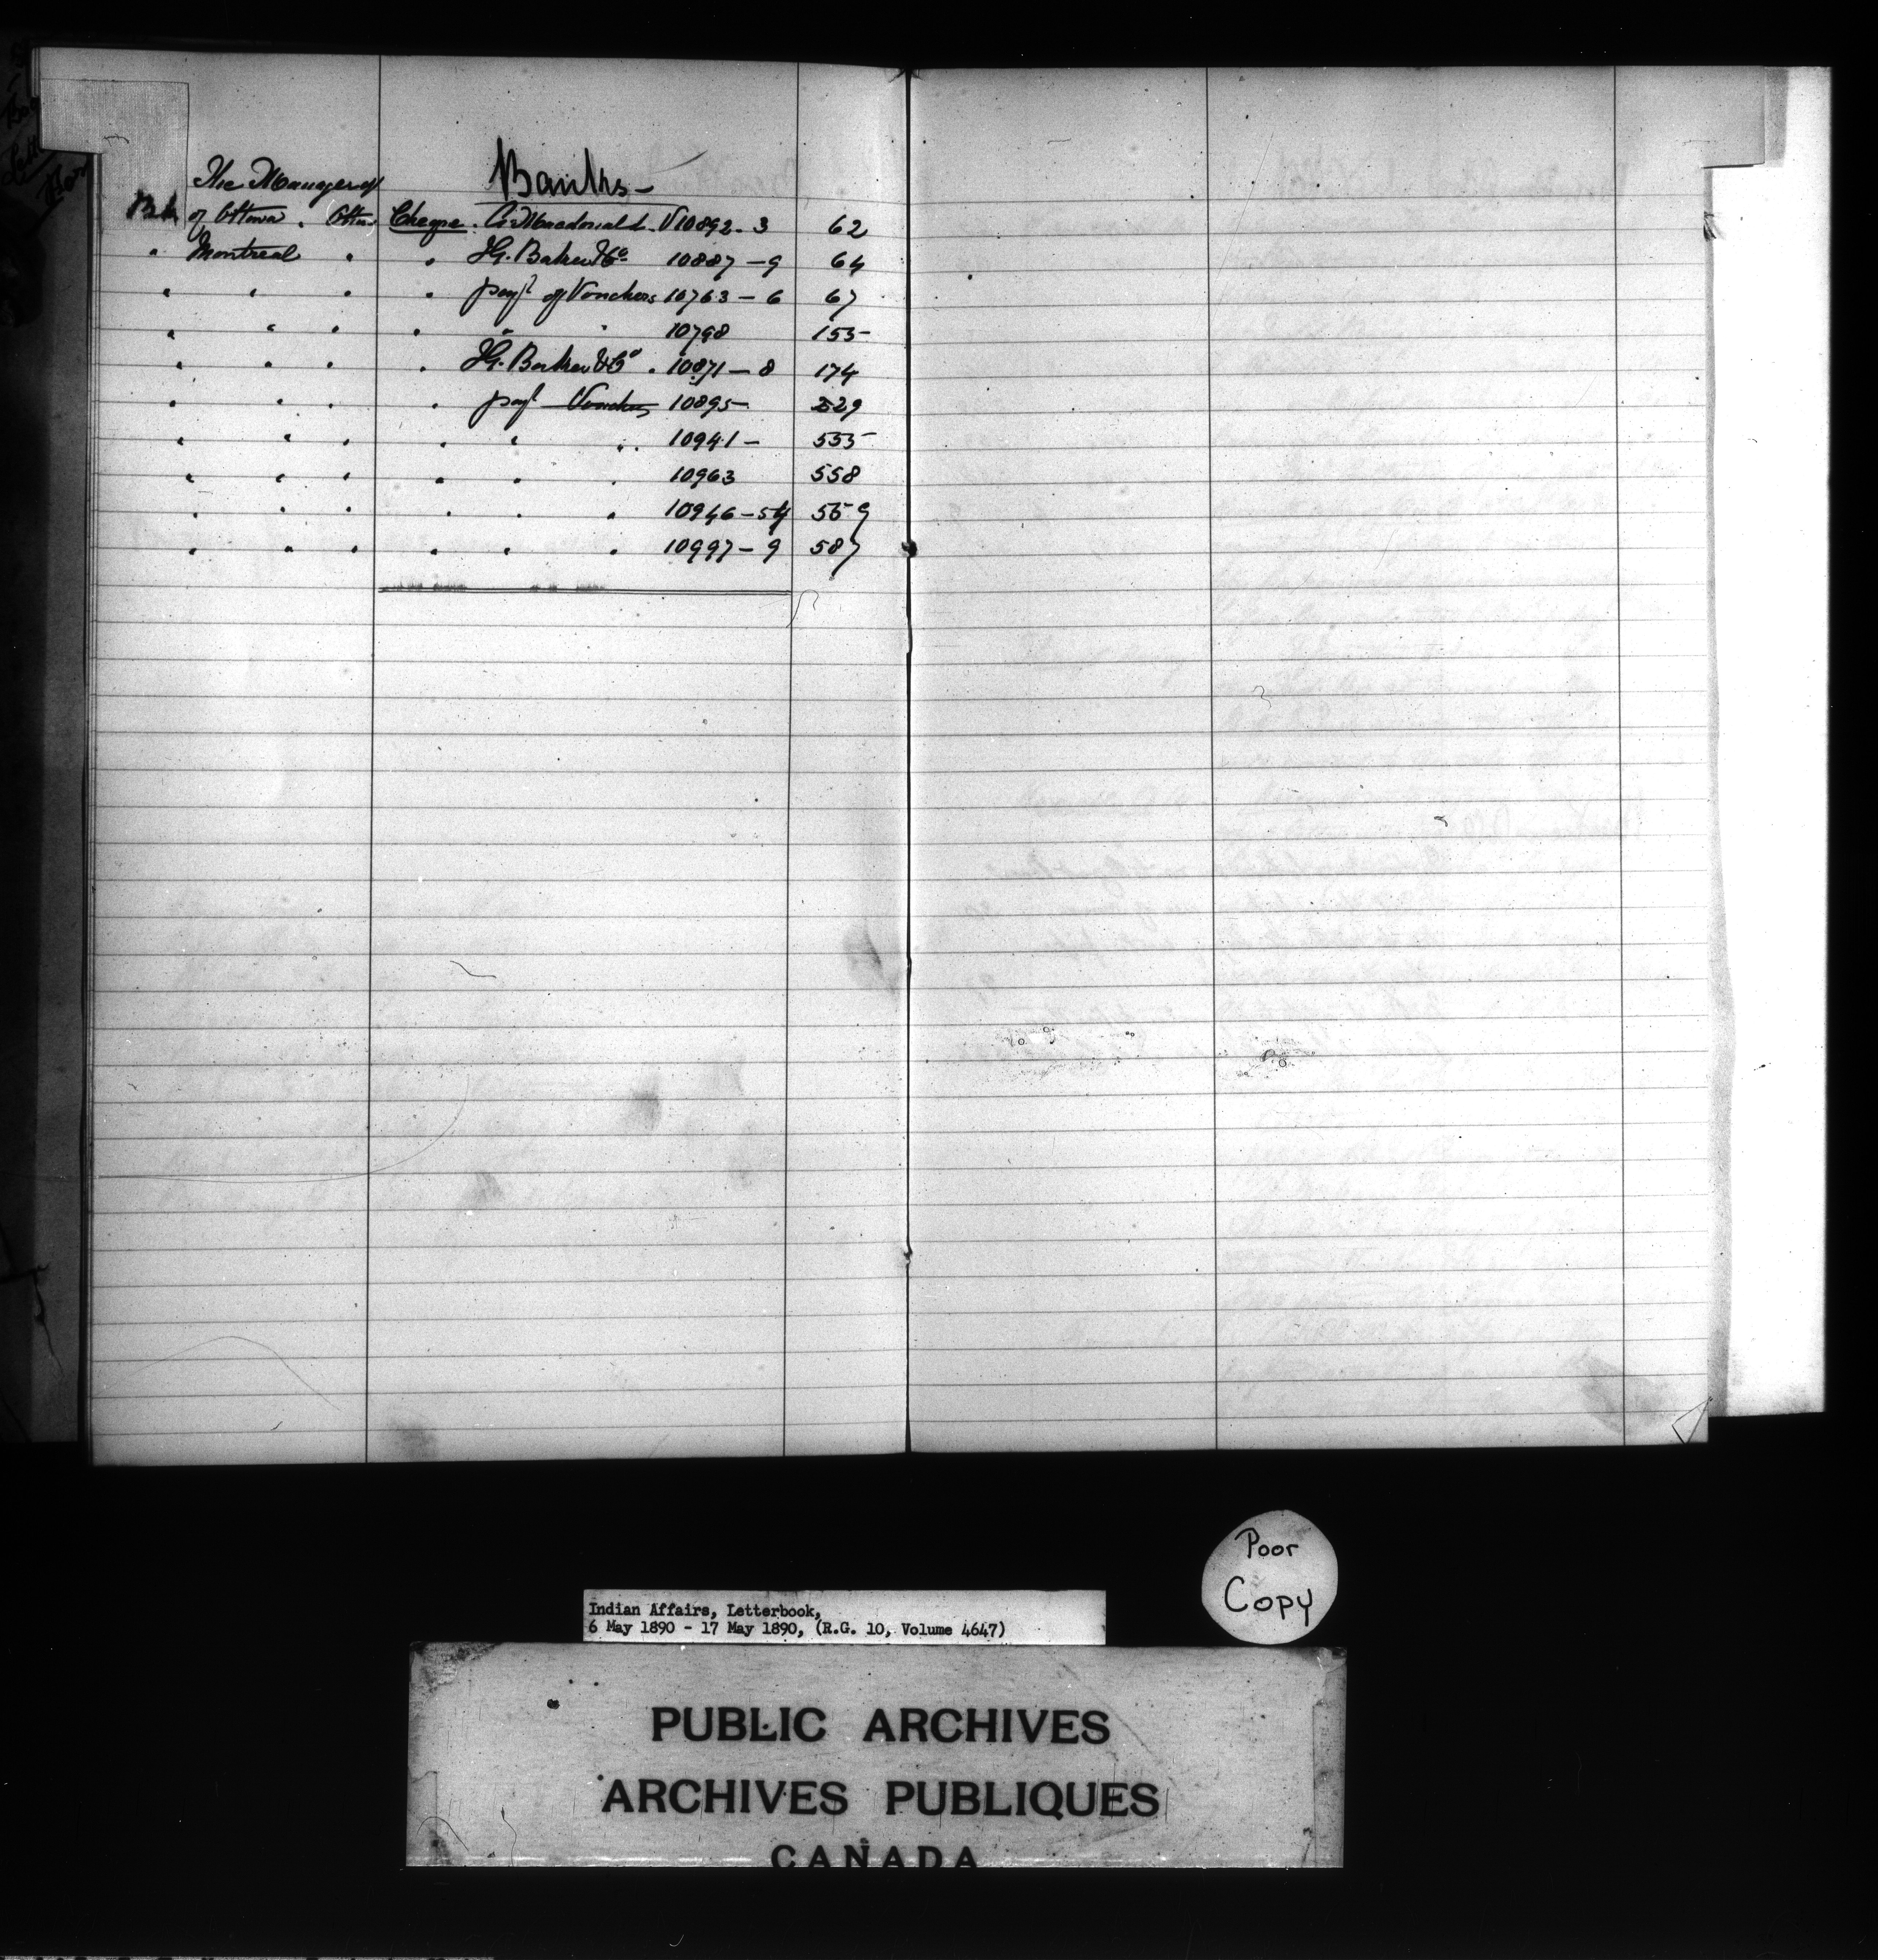 Banks—
The Manager of
Bk of Ottawa . Ottawa Cheque . A. Macdonald . V 10892 - 3 62
" Montreal " " I.G. Baker & Co 10887 - 9 64
" " " " payt of Vouchers 10763 - 6 67
" " " " " " 10798 155
" " " " I.G. Baker & Co . 10871 - 8 174
" " " " payt Vouchers 10895 - 529
" " " " " " 10941 - 555
" " " " " " 10963 558
" " " " " " 10946 - 54 559
" " " " " " 10997 - 9 587
Poor
Copy
Indian Affairs, Letterbook,
6 May 1890 - 17 May 1890, (R.G. 10, Volume 4647)
PUBLIC ARCHIVES
ARCHIVES PUBLIQUES
CANADA